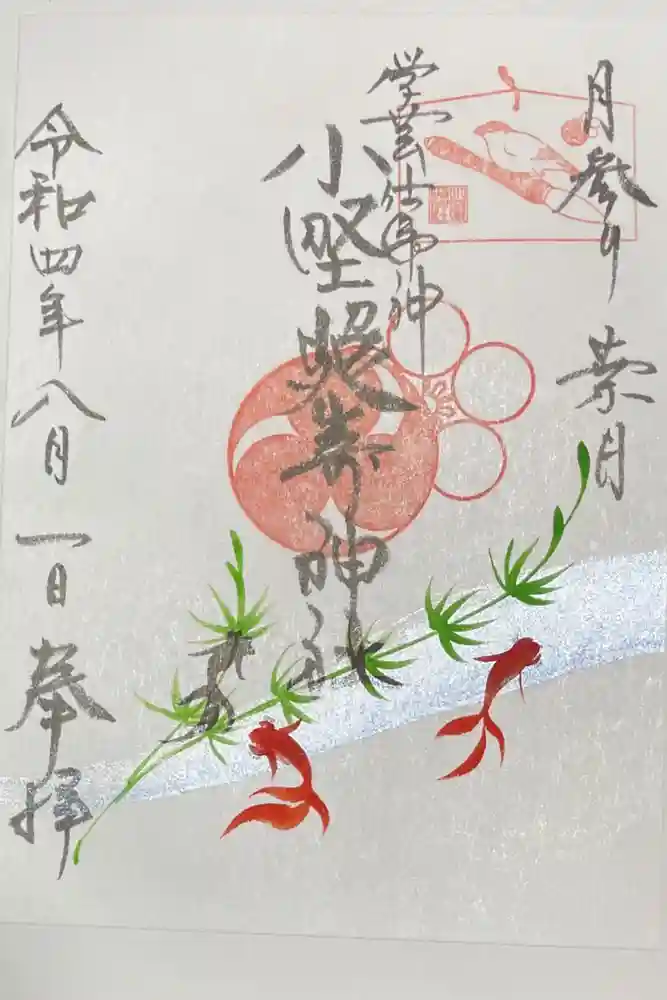 月参り 葉月
学芸仕事神
小野照崎神社
令和四年八月一日奉拝